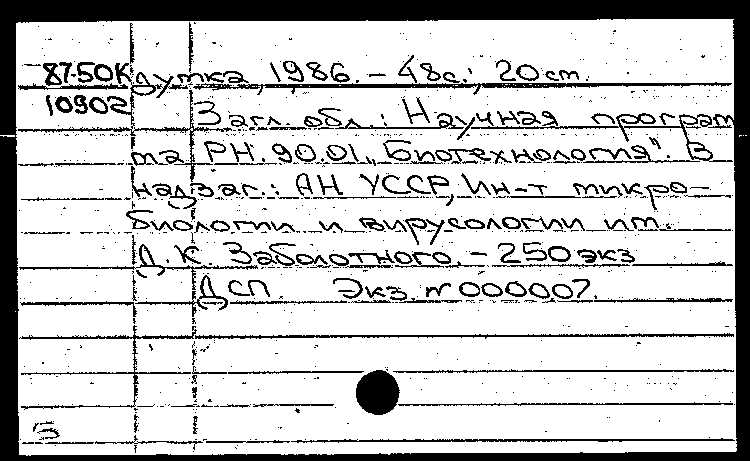 87-50К думка, 1986. – 48с.; 20 см.
10902 Загл. обл.: Научная програм
ма РН.90.01 „Биотехнология". В
надзаг.: АН УССР, Ин-т микро-
биологии и вирусологии им.
Д.К. Заболотного. – 250 экз
ДСП. Экз. № 000007.